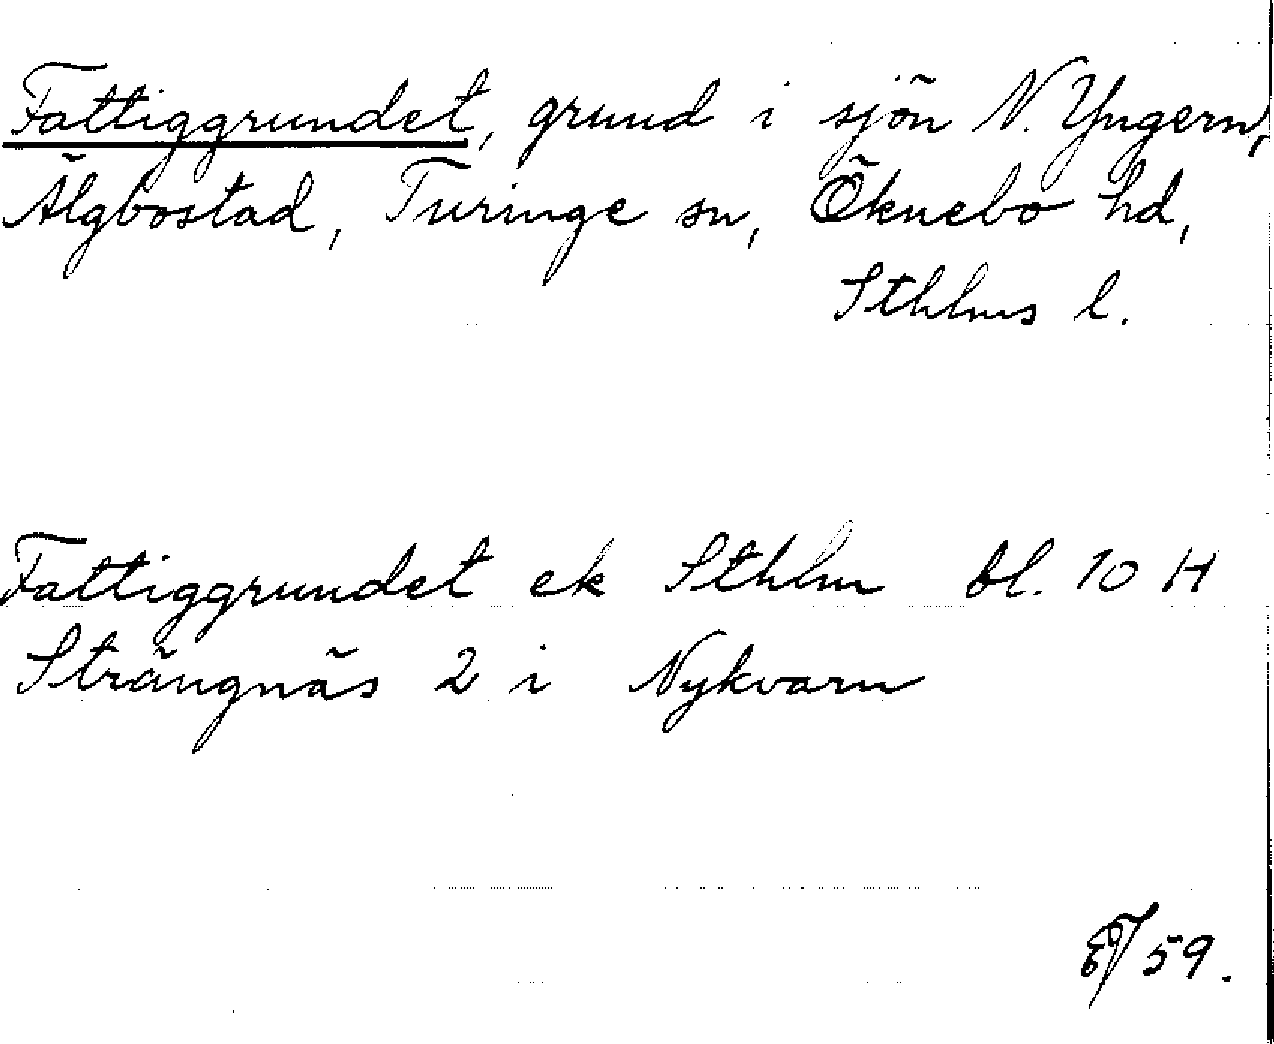 Fattiggrundet, grund i sjön N. Yngern,
Älgbostad, Turinge sn, Öknebo hd,
Sthlms l.
Fattiggrundet ek Sthlm bl. 10 H
Strängnäs 2 i Nykvarn
59.